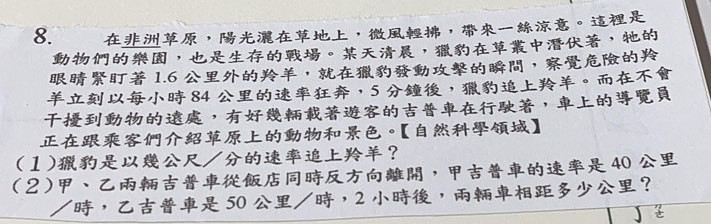 8. 在非洲草原，陽光灑在草地上，微風輕拂，帶來一絲涼意。這裡是
動物們的樂園，也是生存的戰場。某天清晨，獵豹在草叢中潛伏著，牠的
眼睛緊盯著 1.6 公里外的羚羊，就在獵豹發動攻擊的瞬間，察覺危險的羚
羊立刻以每小時 84 公里的速率狂奔，5 分鐘後，獵豹追上羚羊。而在不會
干擾到動物的遠處，有好幾輛載著遊客的吉普車在行駛著，車上的導覽員
正在跟乘客們介紹草原上的動物和景色。【自然科學領域】
(1)獵豹是以幾公尺／分的速率追上羚羊？
(2)甲、乙兩輛吉普車從飯店同時反方向離開，甲吉普車的速率是 40 公里
／時，乙吉普車是 50 公里／時，2 小時後，兩輛車相距多少公里？